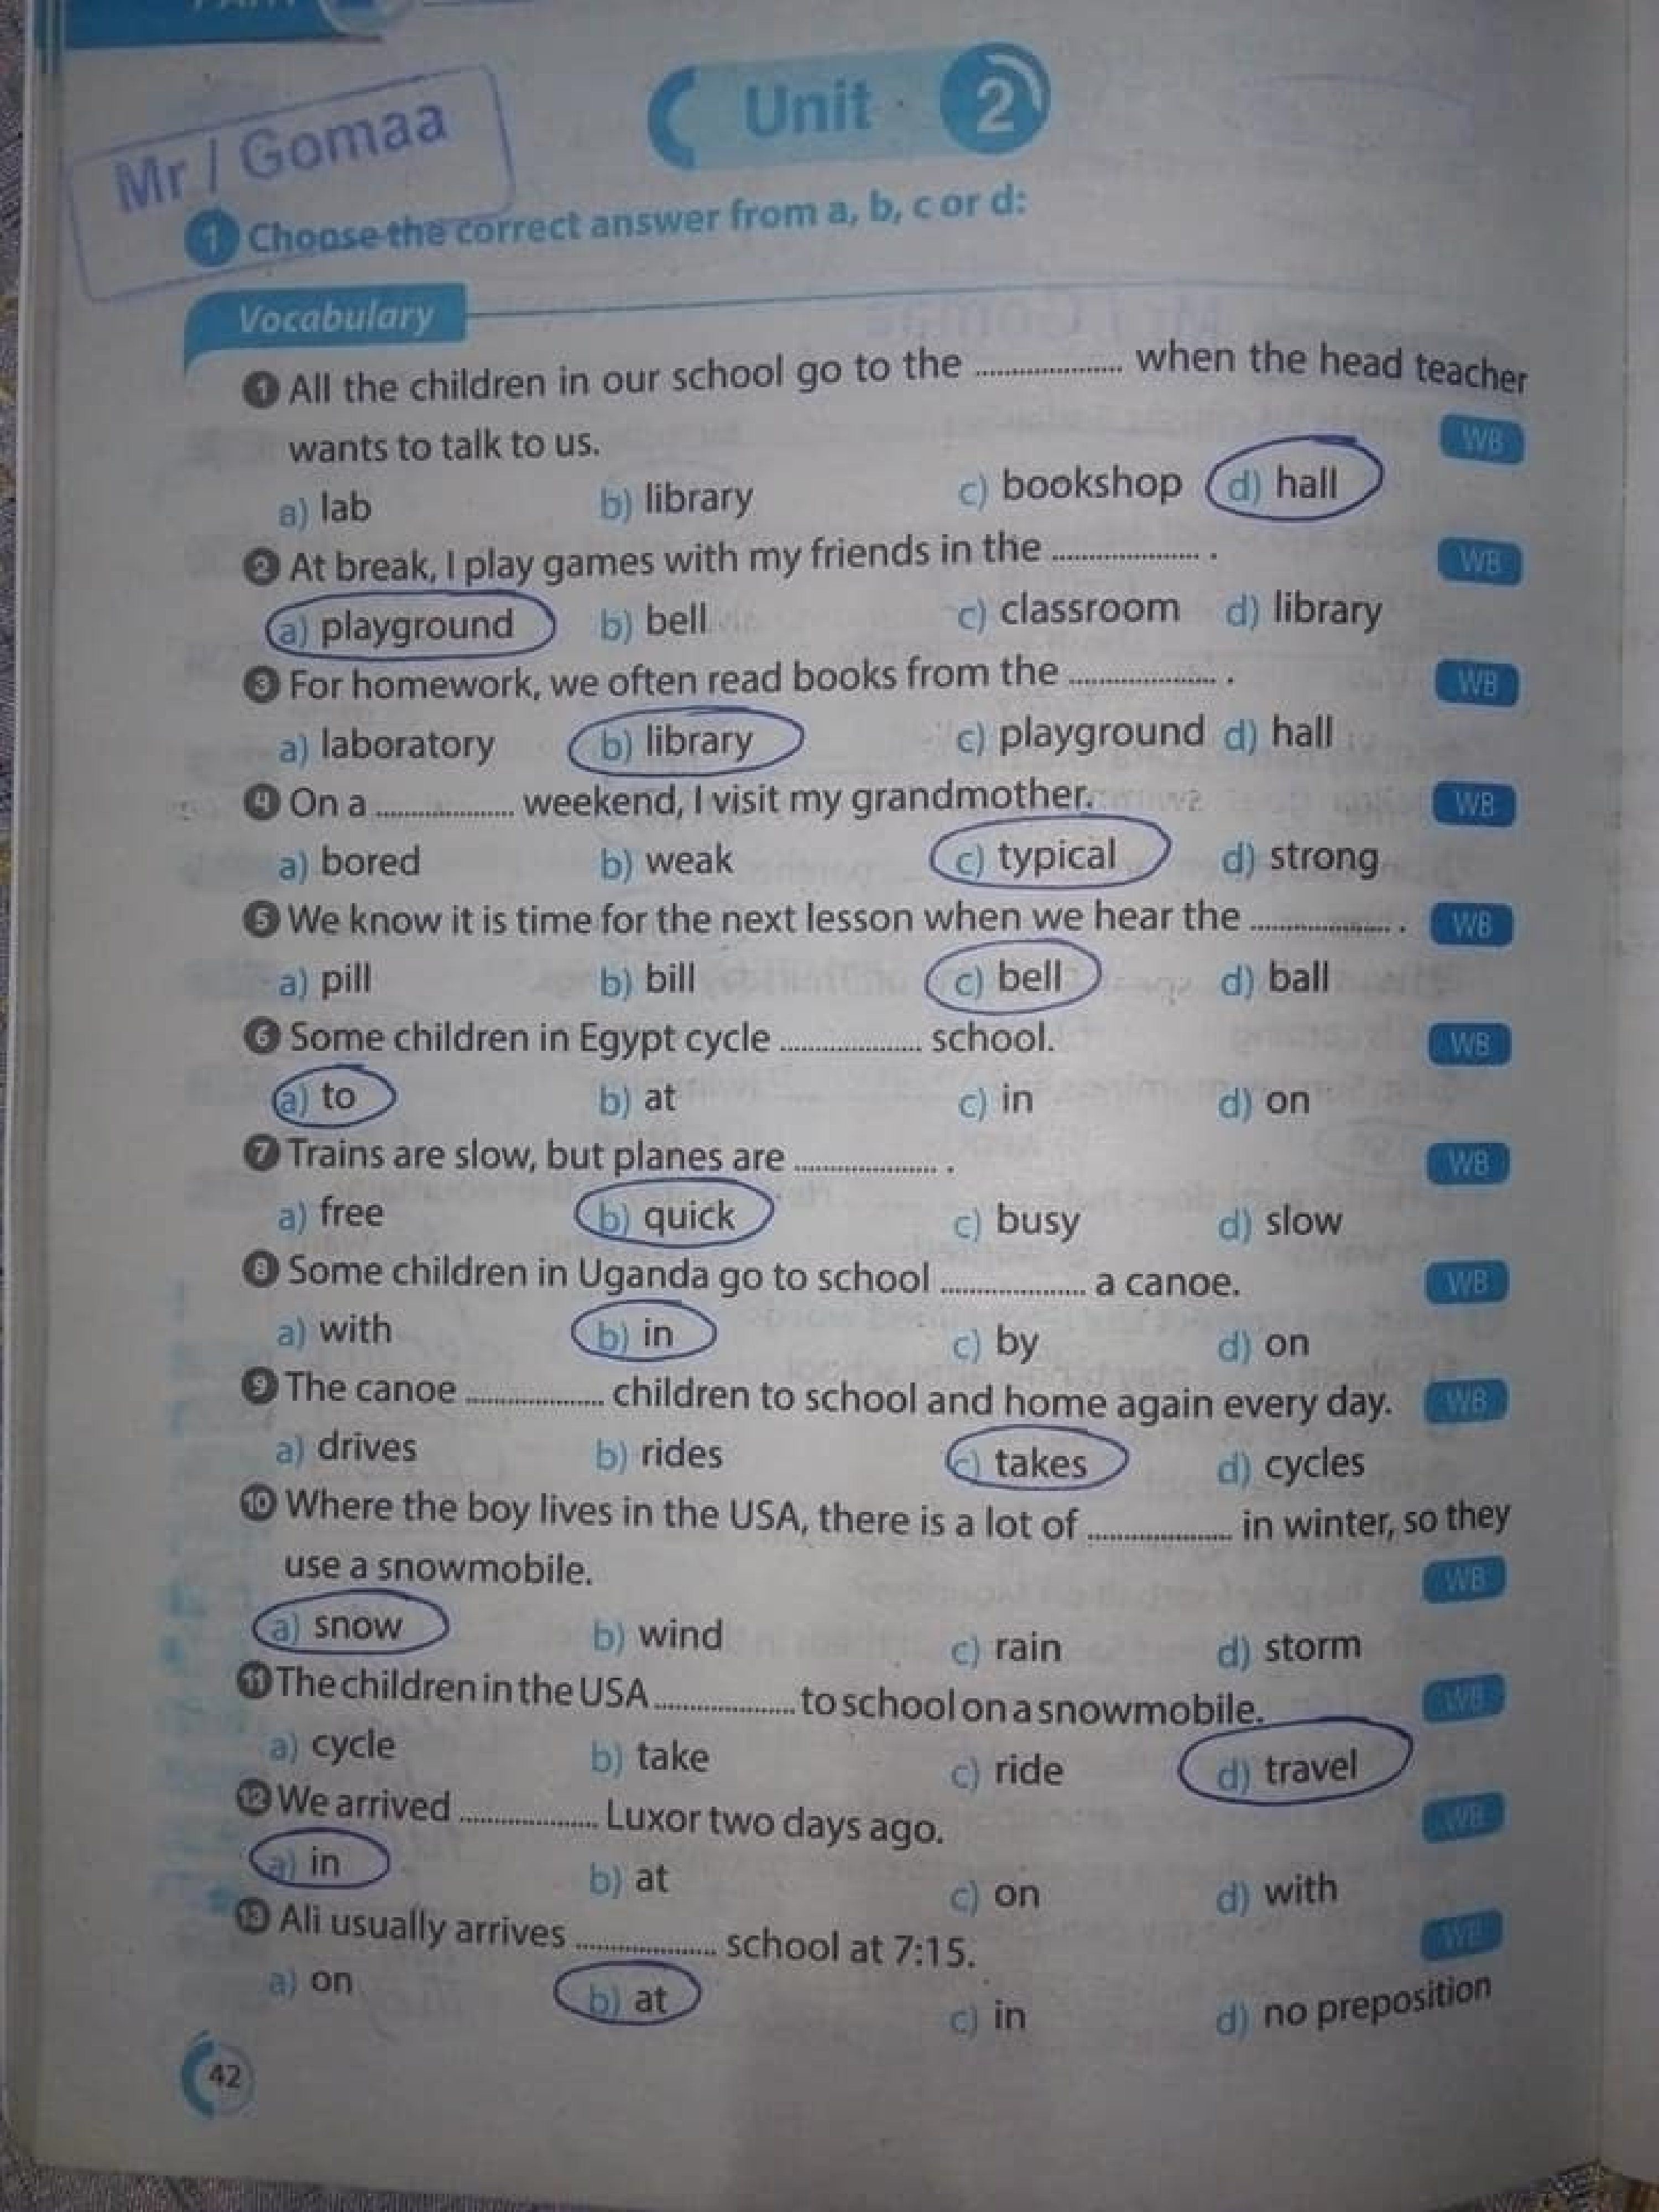 Unit 2
Mr / Gomaa
1 Choose the correct answer from a, b, c or d:
Vocabulary
1 All the children in our school go to the .................... when the head teacher
wants to talk to us. WB
a) lab b) library c) bookshop d) hall
2 At break, I play games with my friends in the .................... . WB
a) playground b) bell c) classroom d) library
3 For homework, we often read books from the .................... . WB
a) laboratory b) library c) playground d) hall
4 On a .................... weekend, I visit my grandmother. WB
a) bored b) weak c) typical d) strong
5 We know it is time for the next lesson when we hear the .................... . WB
a) pill b) bill c) bell d) ball
6 Some children in Egypt cycle .................... school. WB
a) to b) at c) in d) on
7 Trains are slow, but planes are .................... . WB
a) free b) quick c) busy d) slow
8 Some children in Uganda go to school .................... a canoe. WB
a) with b) in c) by d) on
9 The canoe .................... children to school and home again every day. WB
a) drives b) rides c) takes d) cycles
10 Where the boy lives in the USA, there is a lot of .................... in winter, so they
use a snowmobile. WB
a) snow b) wind c) rain d) storm
11 The children in the USA .................... to school on a snowmobile. WB
a) cycle b) take c) ride d) travel
12 We arrived .................... Luxor two days ago. WB
a) in b) at c) on d) with
13 Ali usually arrives .................... school at 7:15. WB
a) on b) at c) in d) no preposition
42